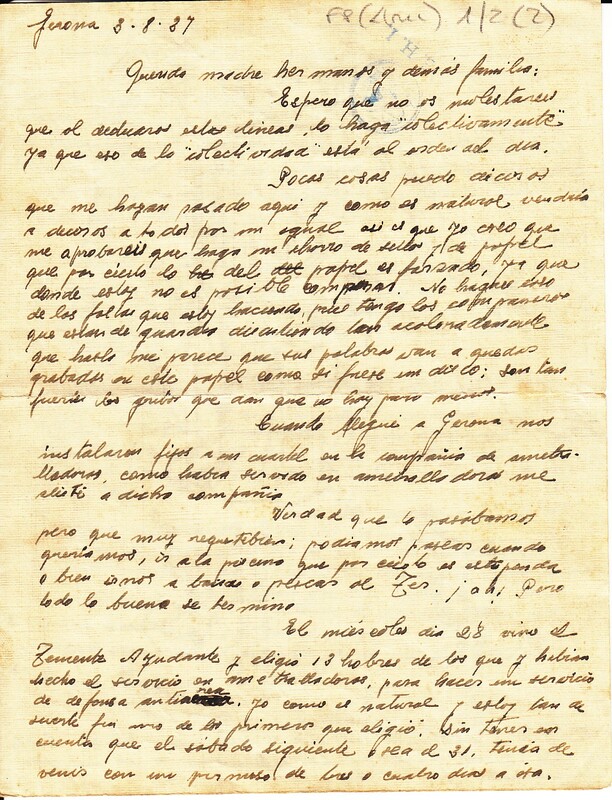 Gerona 3-8-37
FP (Arm) 1/2 (2)
Querida madre hermanos y demás familia:
Espero que no os molestareis
que al dedicaros estas lineas, lo haga "colectivamente"
ya que eso de la "colectividad" está al orden del dia.
Pocas cosas puedo deciros
que me hayan pasado aqui y como es natural vendria
a deciros a todos por un igual asi es que yo creo que
me aprobareis que haga un ahorro de sellos y de papel
que por cierto lo del papel es forzado, ya que
donde estoy no es posible comprar. No hagais caso
de las faltas que estoy haciendo, pues tengo los compañeros
que estan de guardia discutiendo tan acaloradamente
que hasta me parece que sus palabras van a quedar
grabadas en este papel como si fuese un disco; son tan
fuertes los gritos que dan que no hay para menos.
Cuando llegué a Gerona nos
instalaron fijos a un cuartel en la compañia de ametra-
lladoras, como habia servido en ametralladoras me
alisté a dicha compañia
Verdad que lo pasábamos
pero que muy requetebien; podiamos pasear cuando
queriamos, ir a la piscina que por cierto es estupenda
o bien irnos a bañar o pescar al Ter. ¡ah! Pero
todo lo bueno se termina
El miércoles dia 28 vino el
Teniente Ayudante y eligió 13 hobres de los que y habian
hecho el servicio en ametralladoras, para hacer un servicio
de defensa antiaerea. Yo como es natural y estoy tan de
suerte fui uno de los primeros que eligió. Sin tener en
cuenta que el sabado siguiente o sea el 31, tenia de
venir con un permiso de tres o cuatro dias a ésa.